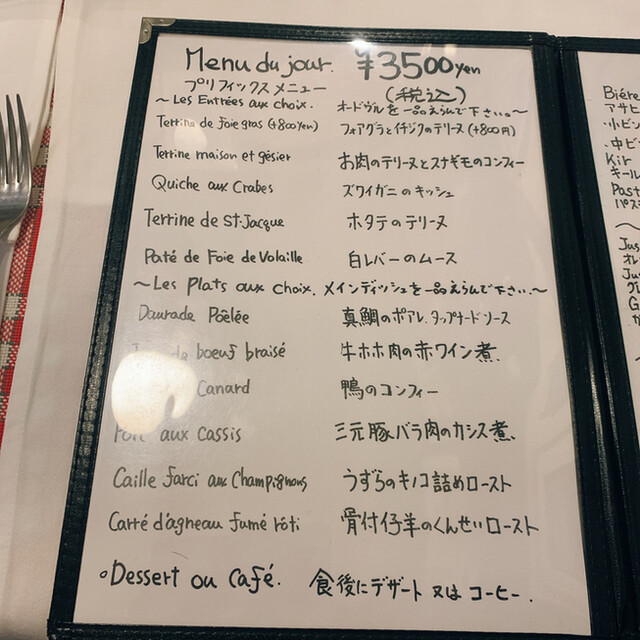 Menu du jour. ¥3500yen
プリフィックスメニュー (税込)
〜Les Entrées aux choix. オードヴルを一品えらんで下さい。〜
Terrine de foie gras (+800yen) フォアグラとイチジクのテリーヌ (+800円)
Terrine maison et gésier お肉のテリーヌとスナギモのコンフィー
Quiche aux Crabes ズワイガニのキッシュ
Terrine de St-Jacque ホタテのテリーヌ
Paté de Foie de Volaille 白レバーのムース
〜Les Plats aux choix. メインディッシュを一品えらんで下さい.〜
Daurade Pôelée 真鯛のポアレ、タップナードソース
de boeuf braisé 牛ホホ肉の赤ワイン煮、
Canard 鴨のコンフィー
aux Cassis 三元豚バラ肉のカシス煮、
Caille farci aux Champignons うずらのキノコ詰めロースト
Carré d'agneau fumé rôti 骨付仔羊のくんせいロースト
。Dessert ou Café. 食後にデザート又はコーヒー.
Biére
アサヒ
・小ビン
・中ビ
Kir
キール
Past
パス
Jus
オレ
Ju
グレ
G